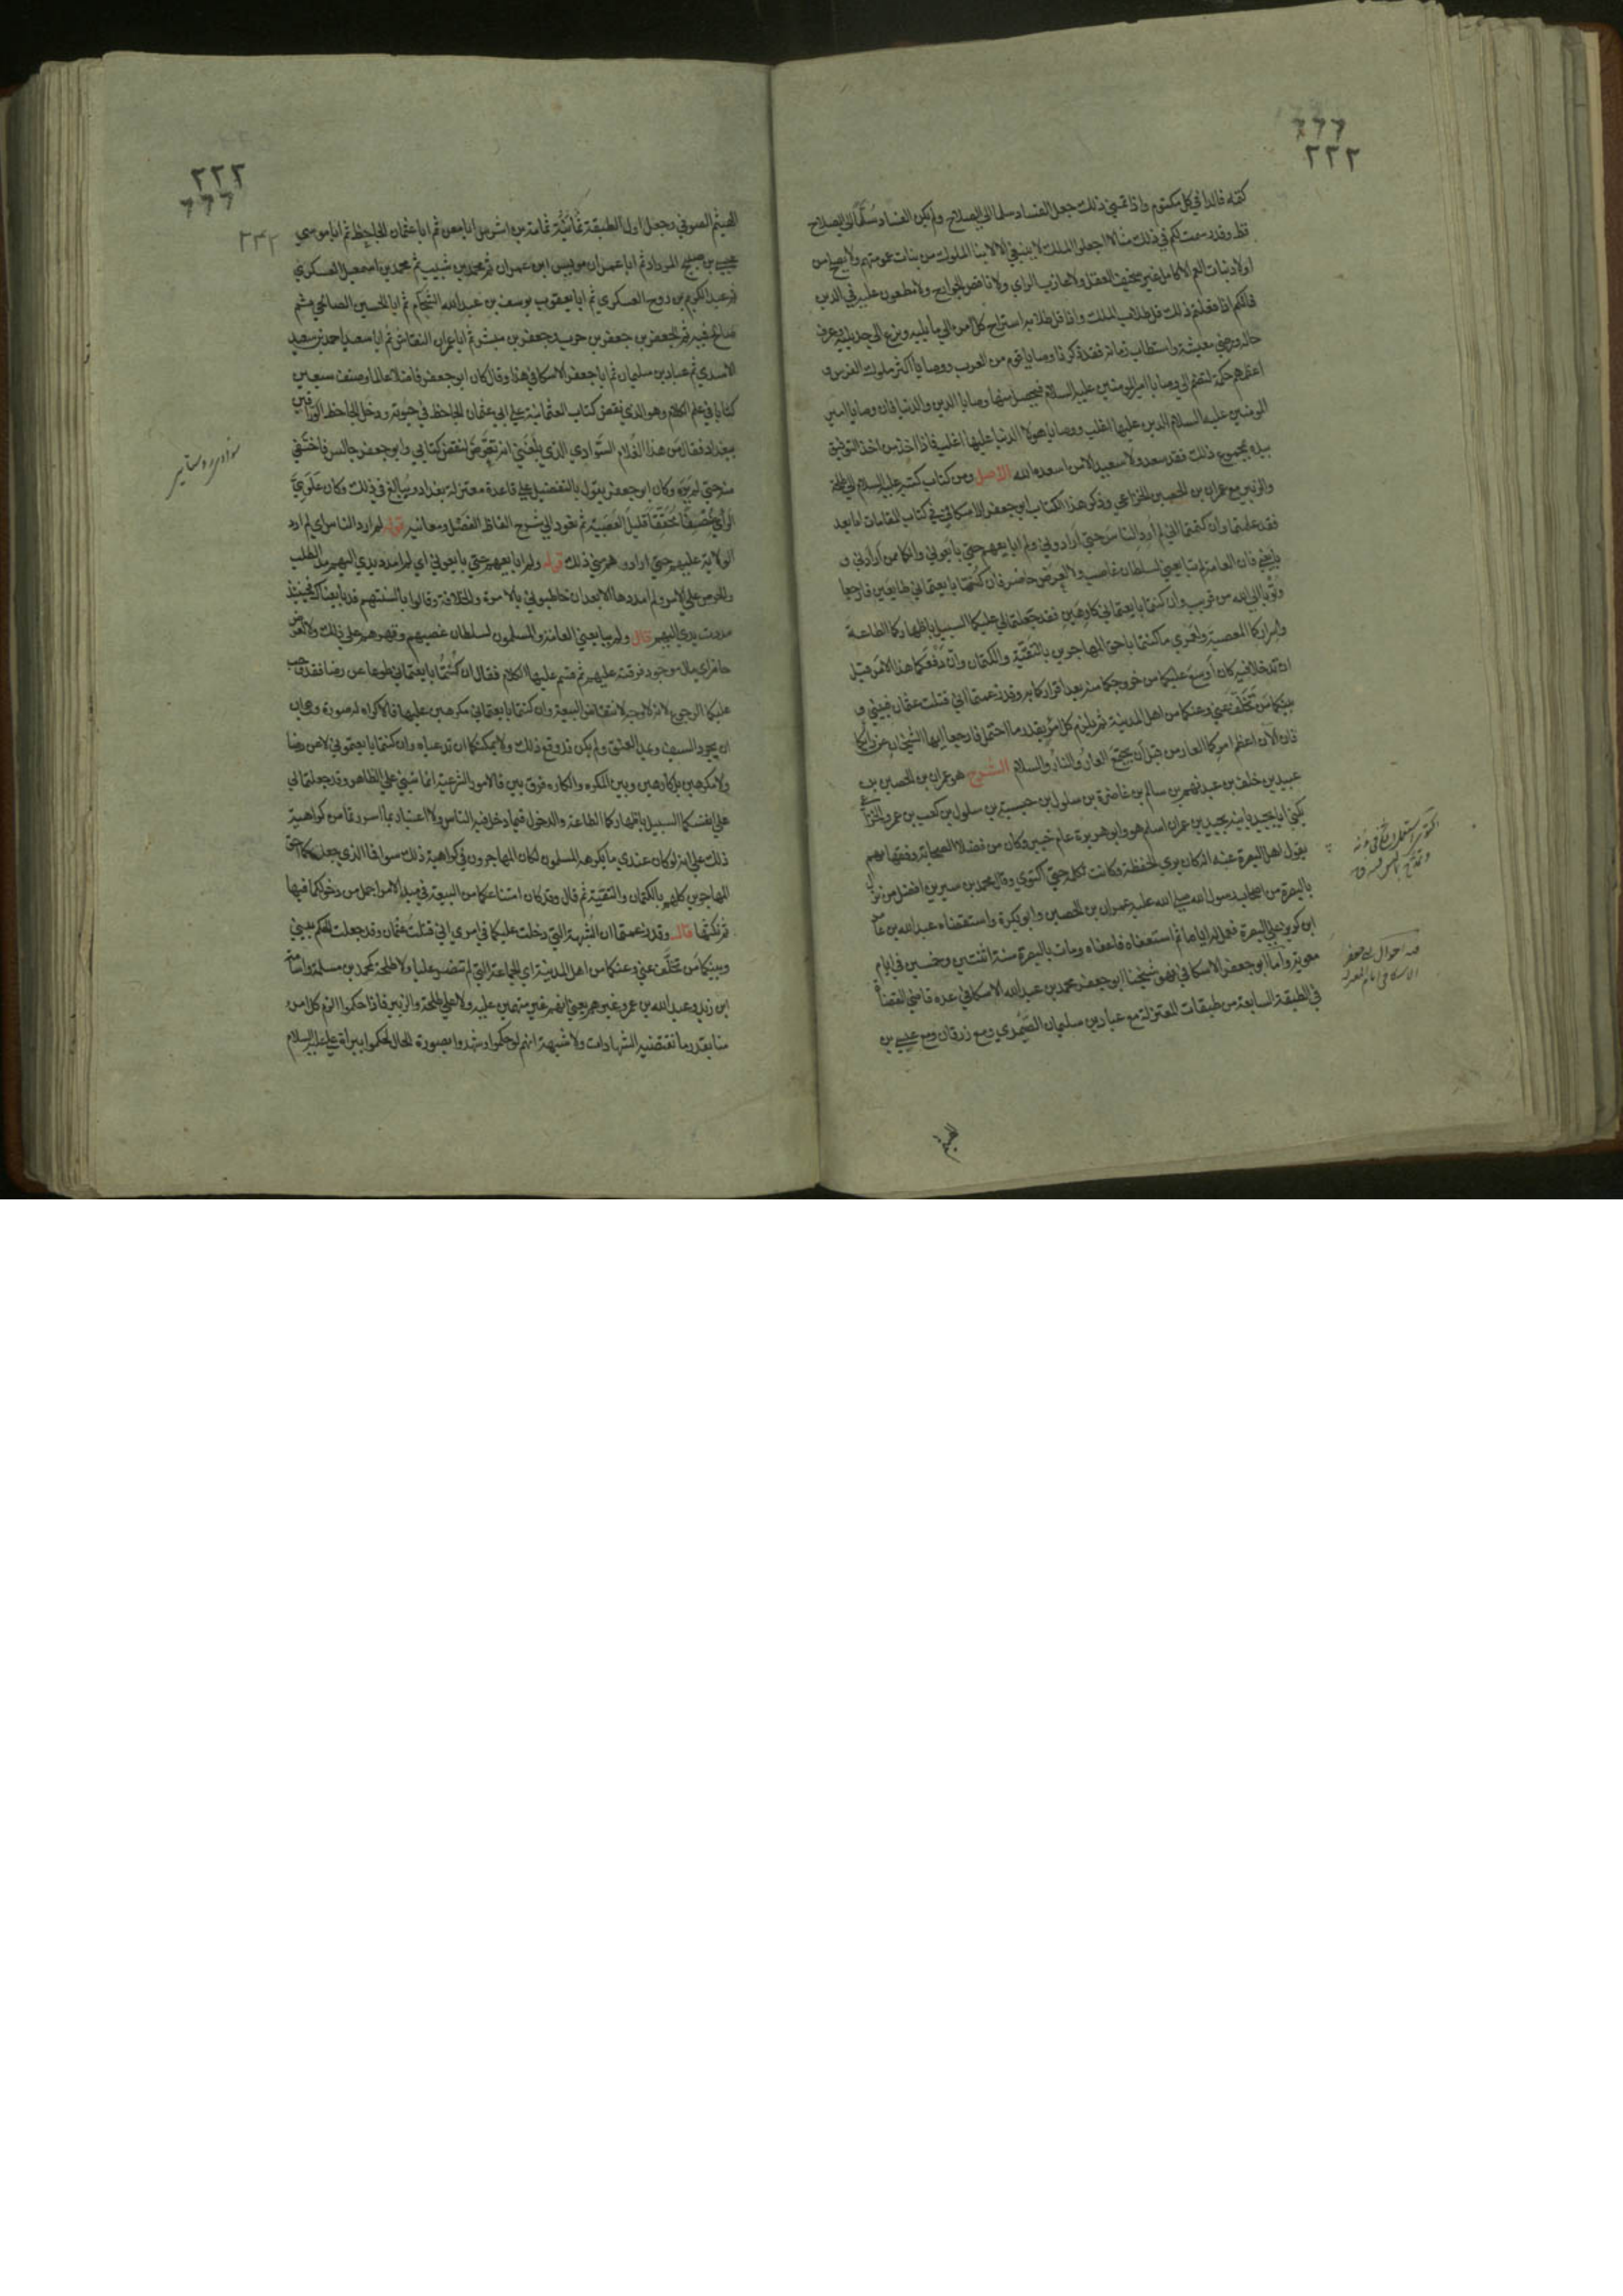 ٢٢٢
كفله فالداء في كل مكتوم واذا تمنى ذلك جعل الفساد سلما الى الصلاح ولم يكن الفساد سُلَّمًا الى الصلاح
قط وقد رسمت لكم في ذلك مثالا اجعلوا الملك لا ينبغي الا لابناء الملوك من بنات عمومتهم ولا يصلح من
اولاد بنات العم الا كامل غير سخيف العقل ولا عازب الراي ولا ناقص الجوارح ولا مطعون عليه في الدين
فانكم اذا فعلتم ذلك قل طلاب الملك واذا قل طلابه استراح كل امرء الى ما يليه ونزع الى حد يليه وعرف
حاله ورضي معيشته واستطاب زمانه فقد ذكرنا وصايا قوم من العرب ووصايا اكثر ملوك الفرس و
اعظمهم حكمة لتضم الى وصايا امير المومنين عليه السلام فيحصل منها وصايا الدين والدنيا فان وصايا امير
المومنين عليه السلام الدين عليها اغلب ووصايا هولاء الدنيا عليها اغلب فاذا اخذ من اخذ التوفيق
بيده بمجموع ذلك فقد سعد ولا سعيد الا من اسعده الله الاصل ومن كتاب كتبه عليه السلام الى طلحة
والزبير مع عمران بن الحصين الخزاعي وذكر هذا الكتاب ابو جعفر الاسكافي في كتاب المقامات اما بعد
فقد علمتما وان كتمتما اني لم أُرِدِ النّاسَ حتى أَرَادوني ولم ابايعهم حتى بايَعُوني وانكما ممن أَرادَني و
بايعني فان العامة لم تبايعني لسلطان غاصب ولا لِعَرَض حاضر فان كنتما بايعتماني طايعَين فارجعا
وتُوبا الى الله من قريب وان كنتما بايعتماني كارهَين فقد جعلتما لي عليكما السبيل باظهاركما الطاعة
واسراركما المعصية ولعمري ما كنتما باحق المهاجرين بالتقيّة والكتمان وانّ دَفْعَكما هذا الامر قبل
ان تدخلا فيه كان أَوسَعَ عليكما من خروجكما منه بعد اقراركما به وقد زعمتما اني قتلت عثمان فبيني و
بينكما مَن تَخَلَّفَ عني وعنكما من اهل المدينة ثم يلزم كل امرئ بقدر ما احتمل فارجعا ايها الشيخان عن رأيكما
فان الآن اعظم امركما العار من قبل أن يجتمع العارُ والنارُ والسلام الشرح هو عمران بن الحصين بن
عبيد بن خلف بن عبد نهم بن سالم بن غاضرة بن سلول بن حبشية بن سلول بن كعب بن عمرو الخزاعي
يكنى ابا نجيد بابنه نجيد بن عمران اسلم هو وابو هريرة عام خيبر وكان من فضلاء الصحابة وفقهائهم
يقول اهل البصرة عنه انه كان يرى الحفظة وكانت تكلمه حتى اكتوى وقال محمد بن سيرين افضل من نزل
بالبصرة من اصحاب رسول الله صلى الله عليه عمران بن الحصين وابو بكرة واستقضاه عبد الله بن عامر
ابن كريز على البصرة فعمل له اياما ثم استعفاه فاعفاه ومات بالبصرة سنة اثنتين وخمسين في ايام
معوية واما ابو جعفر الاسكافي فهو شيخنا ابو جعفر محمد بن عبد الله الاسكافي عده قاضي القضاة
في الطبقة السابعة من طبقات المعتزلة مع عباد بن سليمان الصَّيمَري ومع زرقان ومع عيسى بن
الهيثم
احوال ابي جعفر
الاسكافي امام المعتزلة
٢٢٢
٢٣٢
الهيثم الصوفي وجعل اول الطبقة ثمامة بن اشرس ابا معن ثم ابا عثمان الجاحظ ثم ابا موسى
عيسى بن صبيح المردار ثم ابا عمران مويس ابن عمران ثم محمد بن شبيب ثم محمد بن اسمعيل العسكري
ثم عبد الكريم بن روح العسكري ثم ابا يعقوب يوسف بن عبد الله الشحام ثم ابا الحسين الصالحي ثم
صالح قبه ثم الجعفرين جعفر بن حرب وجعفر بن مبشر ثم ابا عمران النقاش ثم ابا سعيد احمد بن سعيد
الاسدي ثم عباد بن سليمان ثم ابا جعفر الاسكافي هذا وقال كان ابو جعفر فاضلا عالما وصنف سبعين
كتابا في علم الكلام وهو الذي نقض كتاب العثمانية على ابي عثمان الجاحظ في حيوته ودخل الجاحظ الوراقين
ببغداد فقال مَن هذا الغُلام السَّوادي الذي بلَغَني انه تعَرَّضَ لنقض كتابي وابو جعفر جالس فاختفى
منه حتى لم يَرَه وكان ابو جعفر يقول بالتفضيل على قاعدة معتزلة بغداد ويبالغ في ذلك وكان عَلَوِيَّ
الرَّأي مُحَقِّقًا مُنصِفًا قليل العَصَبيّة ثم نعود الى شرح الفاظ الفصل ومعانيه قوله لم ارد الناس اي لم ارد
الولاية عليهم حتى ارادوا هم مني ذلك قوله ولم ابايعهم حتى بايعوني اي لم امدد يدي اليهم مدّ الطلب
والحرص على الامر ولم امددها الا بعد ان خاطبوني بالامرة والخلافة وقالوا بالسنتهم قد بايعناك فحينئذ
مددت يدي اليهم قال ولم يبايعني العامة والمسلمون لسلطان غصبهم وقهرهم على ذلك ولا لعرض
حاضر اي مال موجود فرقته عليهم ثم قسم عليهما الكلام فقال ان كُنتُما بايعتماني طوعا عن رضا فقد وجب
عليكما الرجوع لانه لا وجه لانتقاض البيعة وان كنتما بايعتماني مكرهين عليها فالاكراه له صورة وهي ان
ان يجرد السيف ويمد العنق ولم يكن قد وقع ذلك ولا يمكنكما ان تدعياه وان كنتما بايعتموني لا عن رضا
ولا مكرهين بل كارهين وبين المكره والكاره فرق بين فالامور الشرعية انما تبنى على الظاهر وقد جعلتما لي
على انفسكما السبيل باظهاركما الطاعة والدخول فيما دخل فيه الناس ولا اعتبار بما اسررتما من كراهية
ذلك على انه لو كان عندي ما يكرهه المسلمون لكان المهاجرون في كراهية ذلك سواء فما الذي جعلكما احق
المهاجرين كلهم بالكتمان والتقيّة ثم قال وقد كان امتناعكما من البيعة في مبدء الامر اجمل من دخولكما فيها
ثم نكثها قال وقد زعمتما ان الشبهة التي دخلت عليكما في امري اني قتلتُ عثمان وقد جعلت الحكم بيني
وبينكما مَن تخلّف عني وعنكما من اهل المدينة اي الجماعة التي لم تنصر عليا ولا طلحة كمحمد بن مسلمة واسامة
ابن زيد وعبد الله بن عمر وغيرهم يعني انهم غير متهمين عليه ولا على طلحة والزبير فاذا حكموا لزم كل امرء
منا بقدر ما تقتضيه الشهادات ولا شبهة انهم لو حكموا وشهدوا بصورة الحال لحكموا ببراءة علي عليه السلام